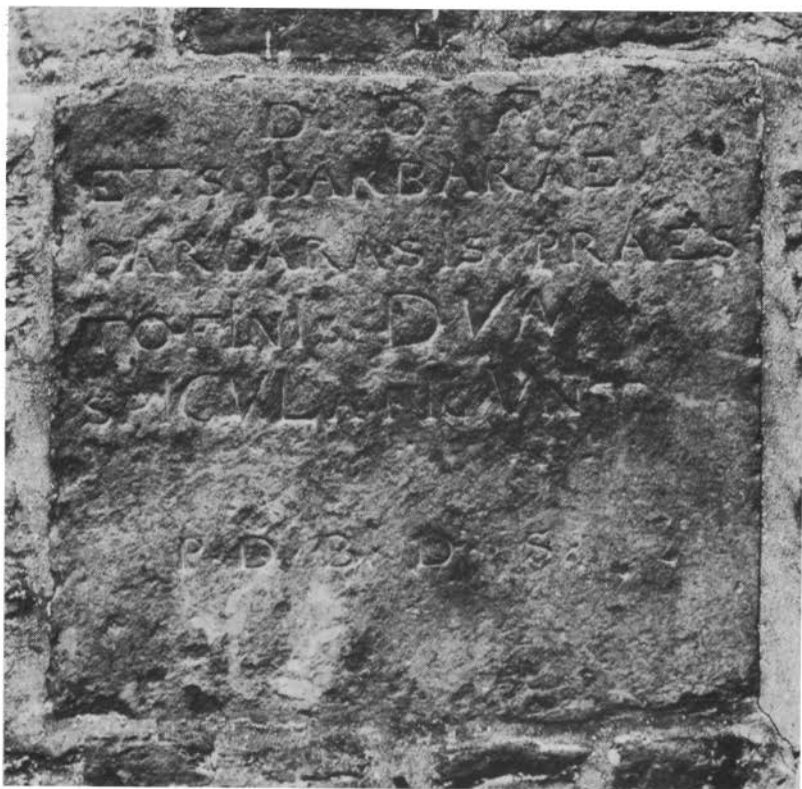 D. D.
ET·S·BARBARAE
BARBARASIS·PRAES
TOFINIS DVM
SPICVLAFIGVNT
P·D·B·D·S·